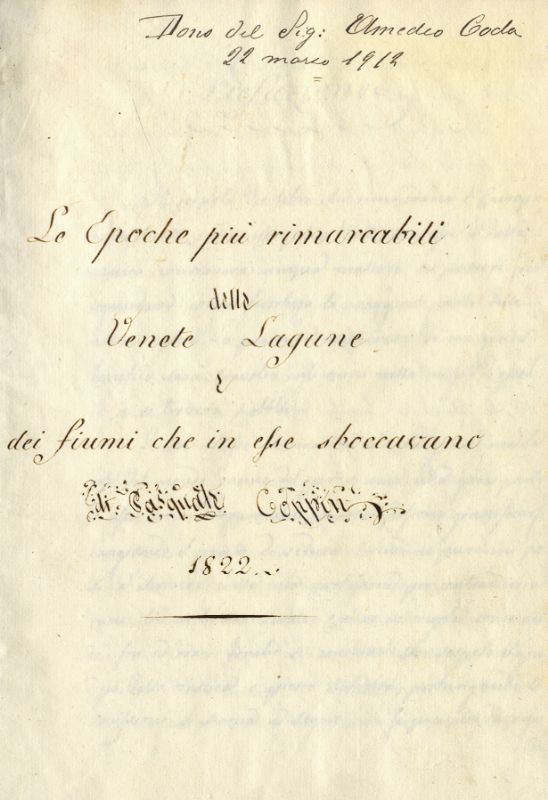 Dono del Sig: Amedeo Coda
22 marzo 1912
Le Epoche più rimarcabili
delle
Venete Lagune
e
dei fiumi che in esse sboccavano
di Pasquale Coppin
1822.